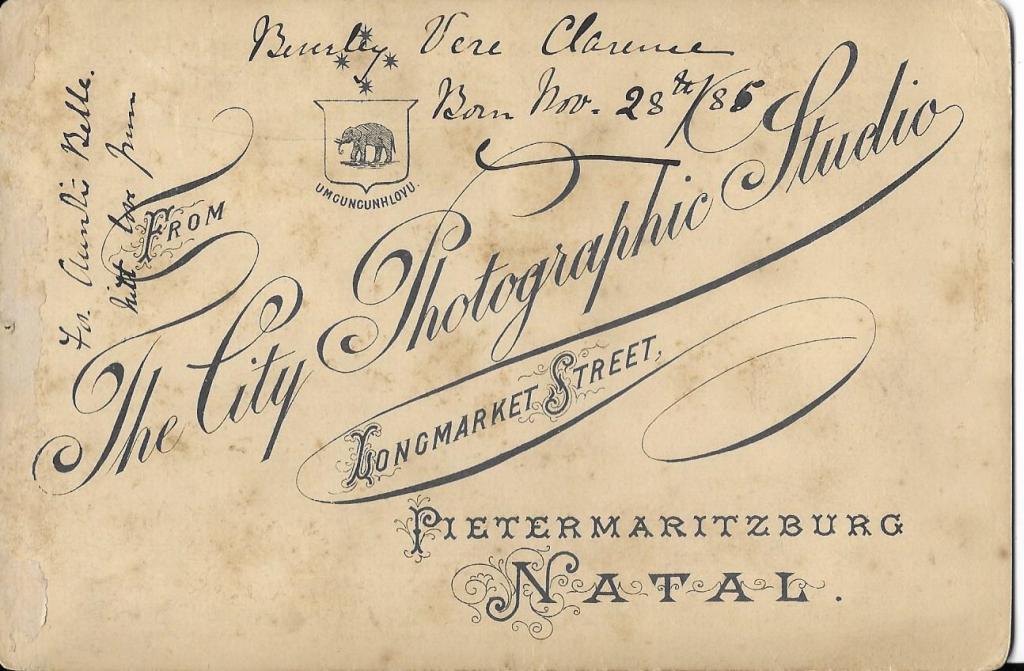 Beverley Vere Clarence
Born Nov. 28th/85
For Auntie Belle.
With love
UMGUNGUNHLOVU.
FROM
The City Photographic Studio
LONGMARKET STREET,
PIETERMARITZBURG
NATAL.